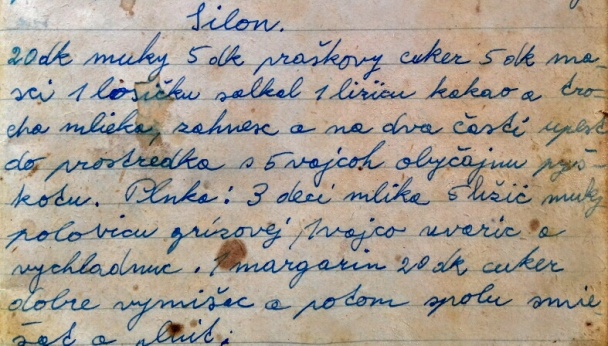 Silon.
20dk muky 5 dk praškovy cuker 5 dk ma-
sci 1 losičku salkal 1 lizicu kakao a tro-
cha mlieka, zahnesc a na dva časti upest
do prostredka s 5 vojcoh obyčajnu pyš-
kotu. Plnka: 3 deci mlika 5 ližic muky
polovicu grízovej 1 vojco uvaric a
vychladnuc. 1 margarin 20 dk cuker
dobre vymišac a potom spolu smie-
šat a plnit;